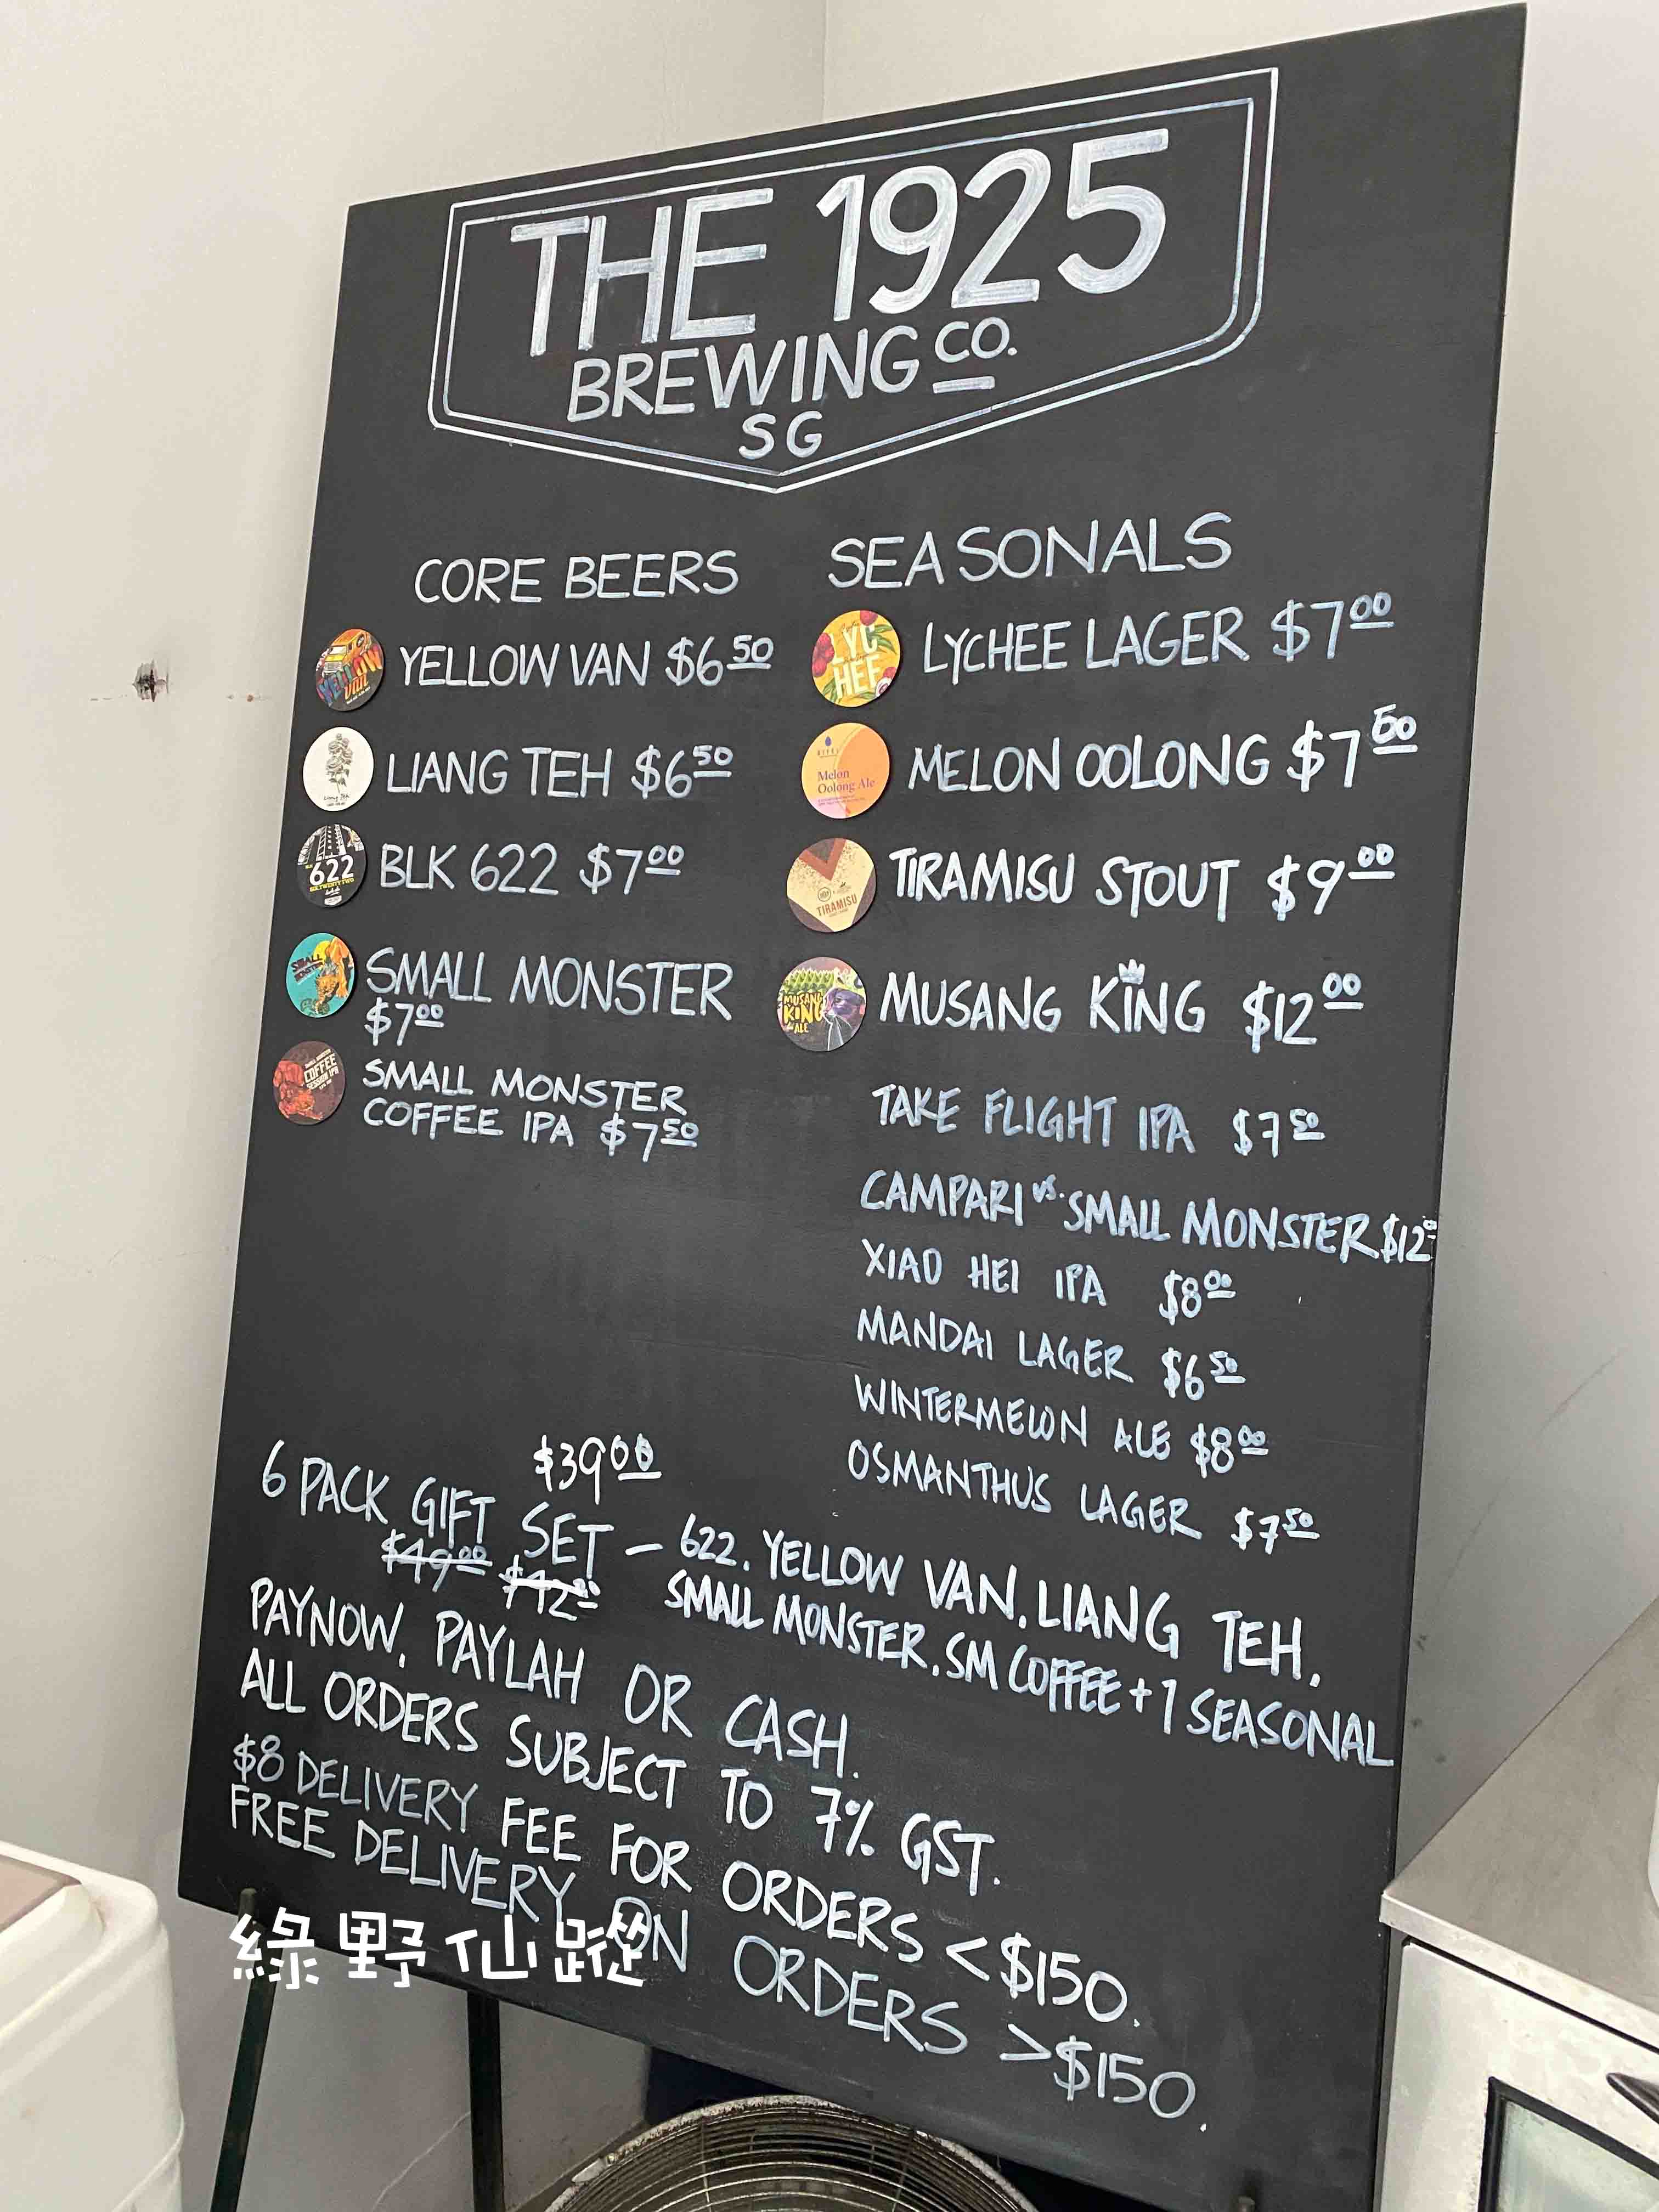 THE 1925
BREWING CO.
SG
CORE BEERS
YELLOW VAN $6.50
LIANG TEH $6.50
BLK 622 $7.00
SMALL MONSTER
$7.00
SMALL MONSTER
COFFEE IPA $7.50
SEASONALS
LYCHEE LAGER $7.00
MELON OOLONG $7
TIRAMISU STOUT $9.00
MUSANG KING $12.00
TAKE FLIGHT IPA $7.50
CAMPARI VS. SMALL MONSTER $12
XIAO HEI IPA $8.00
MANDAI LAGER $6.50
WINTERMELON ALE $8.00
OSMANTHUS LAGER $7.50
YELLOW VAN
622
SMALL MONSTER
COFFEE
SESSION IPA
LYCHEE
Melon
Oolong Ale
TIRAMISU
MUSANG
KING
ALE
$39.00
6 PACK GIFT SET – 622. YELLOW VAN. LIANG TEH.
$49.00 $42.00 SMALL MONSTER. SM COFFEE + 1 SEASONAL
PAYNOW. PAYLAH OR CASH.
ALL ORDERS SUBJECT TO 7% GST.
$8 DELIVERY FEE FOR ORDERS < $150.
FREE DELIVERY ON ORDERS > $150.
綠野仙蹤